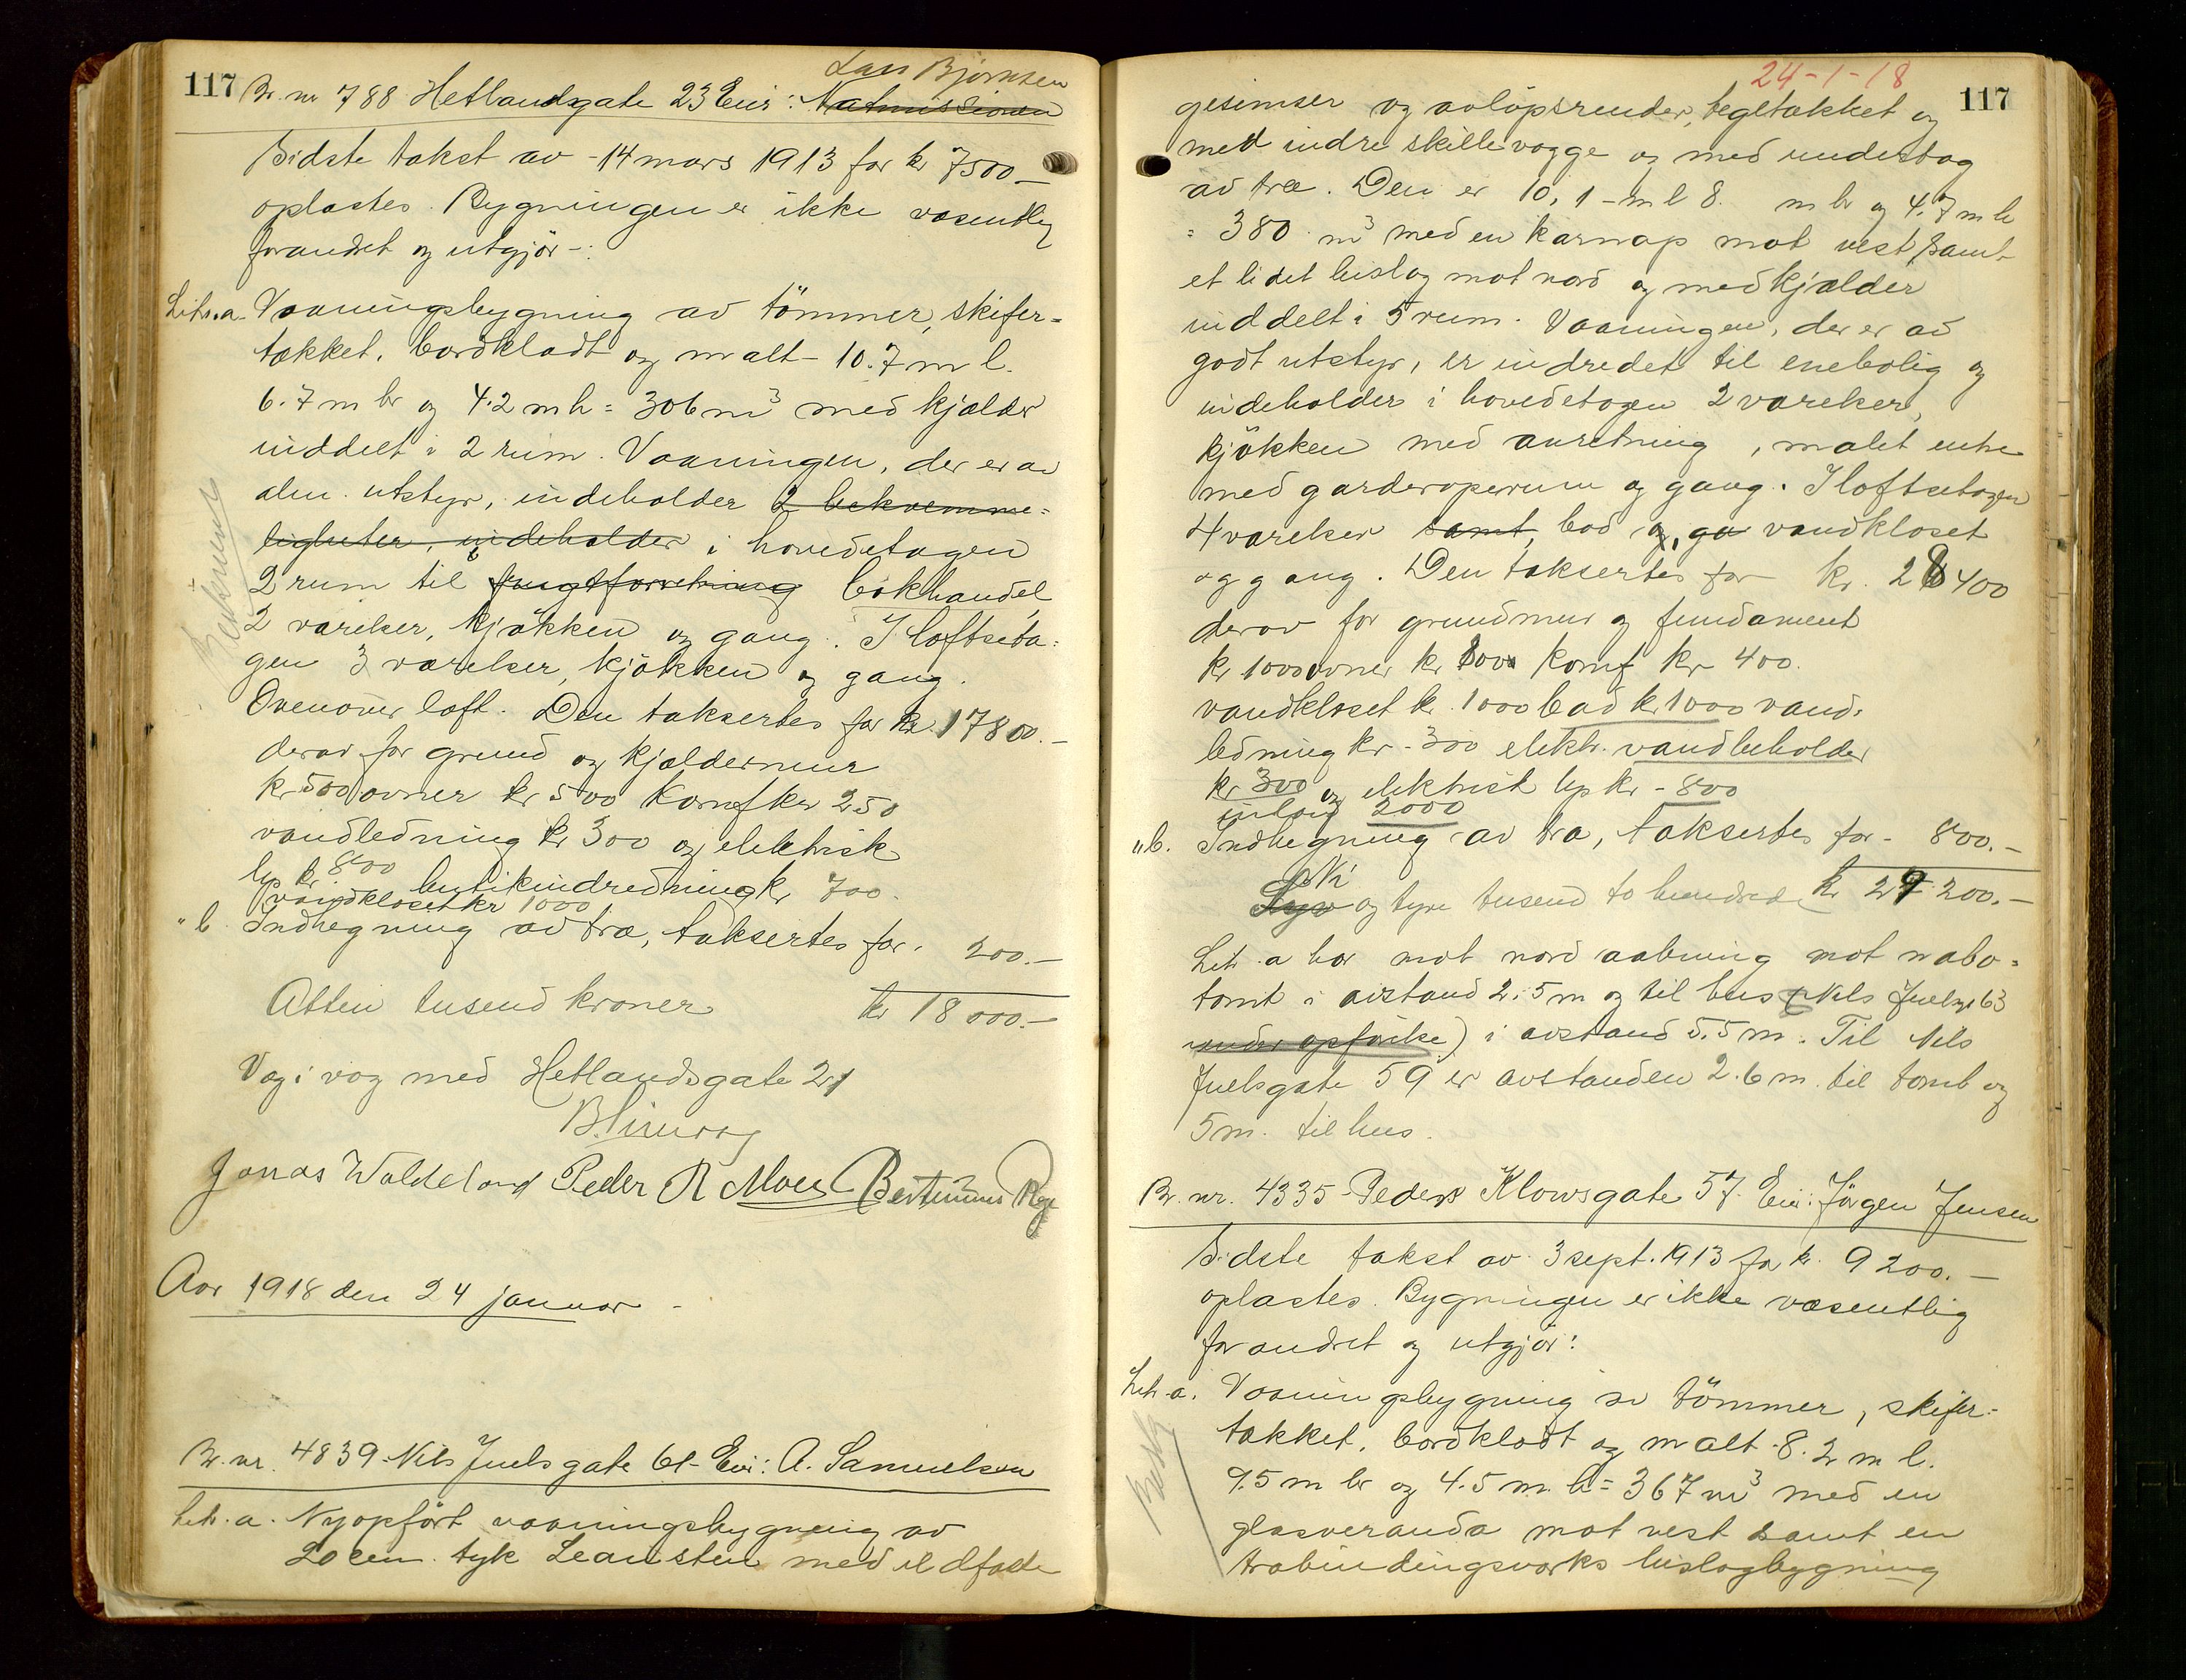 117
Lars Bjørnsen
Br. nr 788 Hetlandsgate 23 Eier: Natmissionen
Sidste takst av 14 mars 1913 for kr 7500.-
oplæstes. Bygningen er ikke væsentlig
forandret og utgjør-:
Litr. a. Vaaningsbygning av tömmer, skifer-
tækket, bordklædt og malt - 10.7 m l.
6.7 m br og 4.2 m h = 306 m³ med kjælder
inddelt i 2 rum. Vaaningen, der er av
alm. utstyr, indeholder 2 bekvemme-
ligheter, indeholder i hovedetagen
2 rum til bokhandel,
2 værelser, kjökken og gang. I loftseta-
gen 3 værelser, kjökken og gang.
Ovenover loft. Den taksertes for kr. 17800.-
derav for grund og kjældermur
kr 500 ovner kr 500 Komf kr 250
vandledning kr 300 og elektrisk
lys kr 800 butikindredning kr 700.
vandkloset kr 1000
" b Indhegning av træ, taksertes for. 200.-
Atten tusend kroner kr 18 000.-
Væg i væg med Hetlandsgate 21
Jonas Waldeland Peder R Moe Bertinius Rege
Aar 1918 den 24 januar -
Br. nr. 4839 Nils Juels gate 61 - Eier: A. Samuelsen
Litr. a. Nyopfört vaaningsbygning av
20 cm. tyk Leansten med ildfaste
24-1-18
117
gesimser og avløpsrender, tegltækket og
med indre skillevægge og med undertag
av træ. Den er 10,1 - m l 8. m br og 4.7 m h
= 380 m³ med en karnap mot vest, samt
et lidet bislag mot nord og med kjælder
inddelt i 5 rum. Vaaningen, der er av
godt utstyr, er indredet til enebolig og
indeholder i hovedetagen 2 værelser,
kjökken med anretning, malet entre
med garderoperum og gang. I loftsetagen
4 værelser samt, bad og, ga vandkloset
og gang. Den taksertes for kr. 28400
derav for grundmur og fundament
kr 1000 ovner kr 800 Komf kr 400.
vandkloset kr. 1000 bad kr 1000 vand-
ledning kr - 300 elektr. vandbeholder
kr 300 og elektrisk lys kr - 800
innlagt 2000
" b. Indhegning av træ, taksertes for - 800.-
Ni
Syv og tyve tusend to hundrede kr 29 200.-
Litr. a har mot nord aabning mot nabo-
tomt i avstand 2.5 m og til hus (Nils Juelsgt 63
under opførelse) i avstand 5.5 m. Til Nils
Juelsgate 59 er avstanden 2.6 m. til tomt og
5 m. til hus.
Br. nr. 4335 Peders Klowsgate 57. Eier: Jörgen Jensen
Sidste takst av 3 sept. 1913 for kr. 9200.-
oplæstes. Bygningen er ikke væsentlig
forandret og utgjör:
Litr. a. Vaaningsbygning av tömmer, skifer-
tækket, bordklædt og malt - 8.2 m l.
9.5 m br og 4.5 m. h = 367 m³ med en
glasveranda mot vest samt en
træbindingsværks bislagbygning